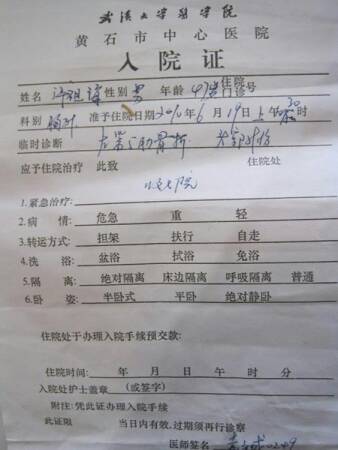 武汉大学医学院
黄石市中心医院
入院证
姓名 性别 男 年龄 47岁 住院门诊号
科别 准予住院日期 2010年6月19日上午 时
临时诊断 左第 肋骨折
应予住院治疗 此致 住院处
1.紧急治疗:
2.病 情: 危急 重 轻
3.转运方式: 担架 扶行 自走
4.洗 浴: 盆浴 拭浴 免浴
5.隔 离: 绝对隔离 床边隔离 呼吸隔离 普通
6.卧 姿: 半卧式 平卧 绝对静卧
住院处于办理入院手续预交款:
住院时间: 年 月 日 午 时 分
入院处护士盖章 (或签字)
附注: 凭此证办理入院手续
此证限 当日内有效,过期须再行诊察
医师签名